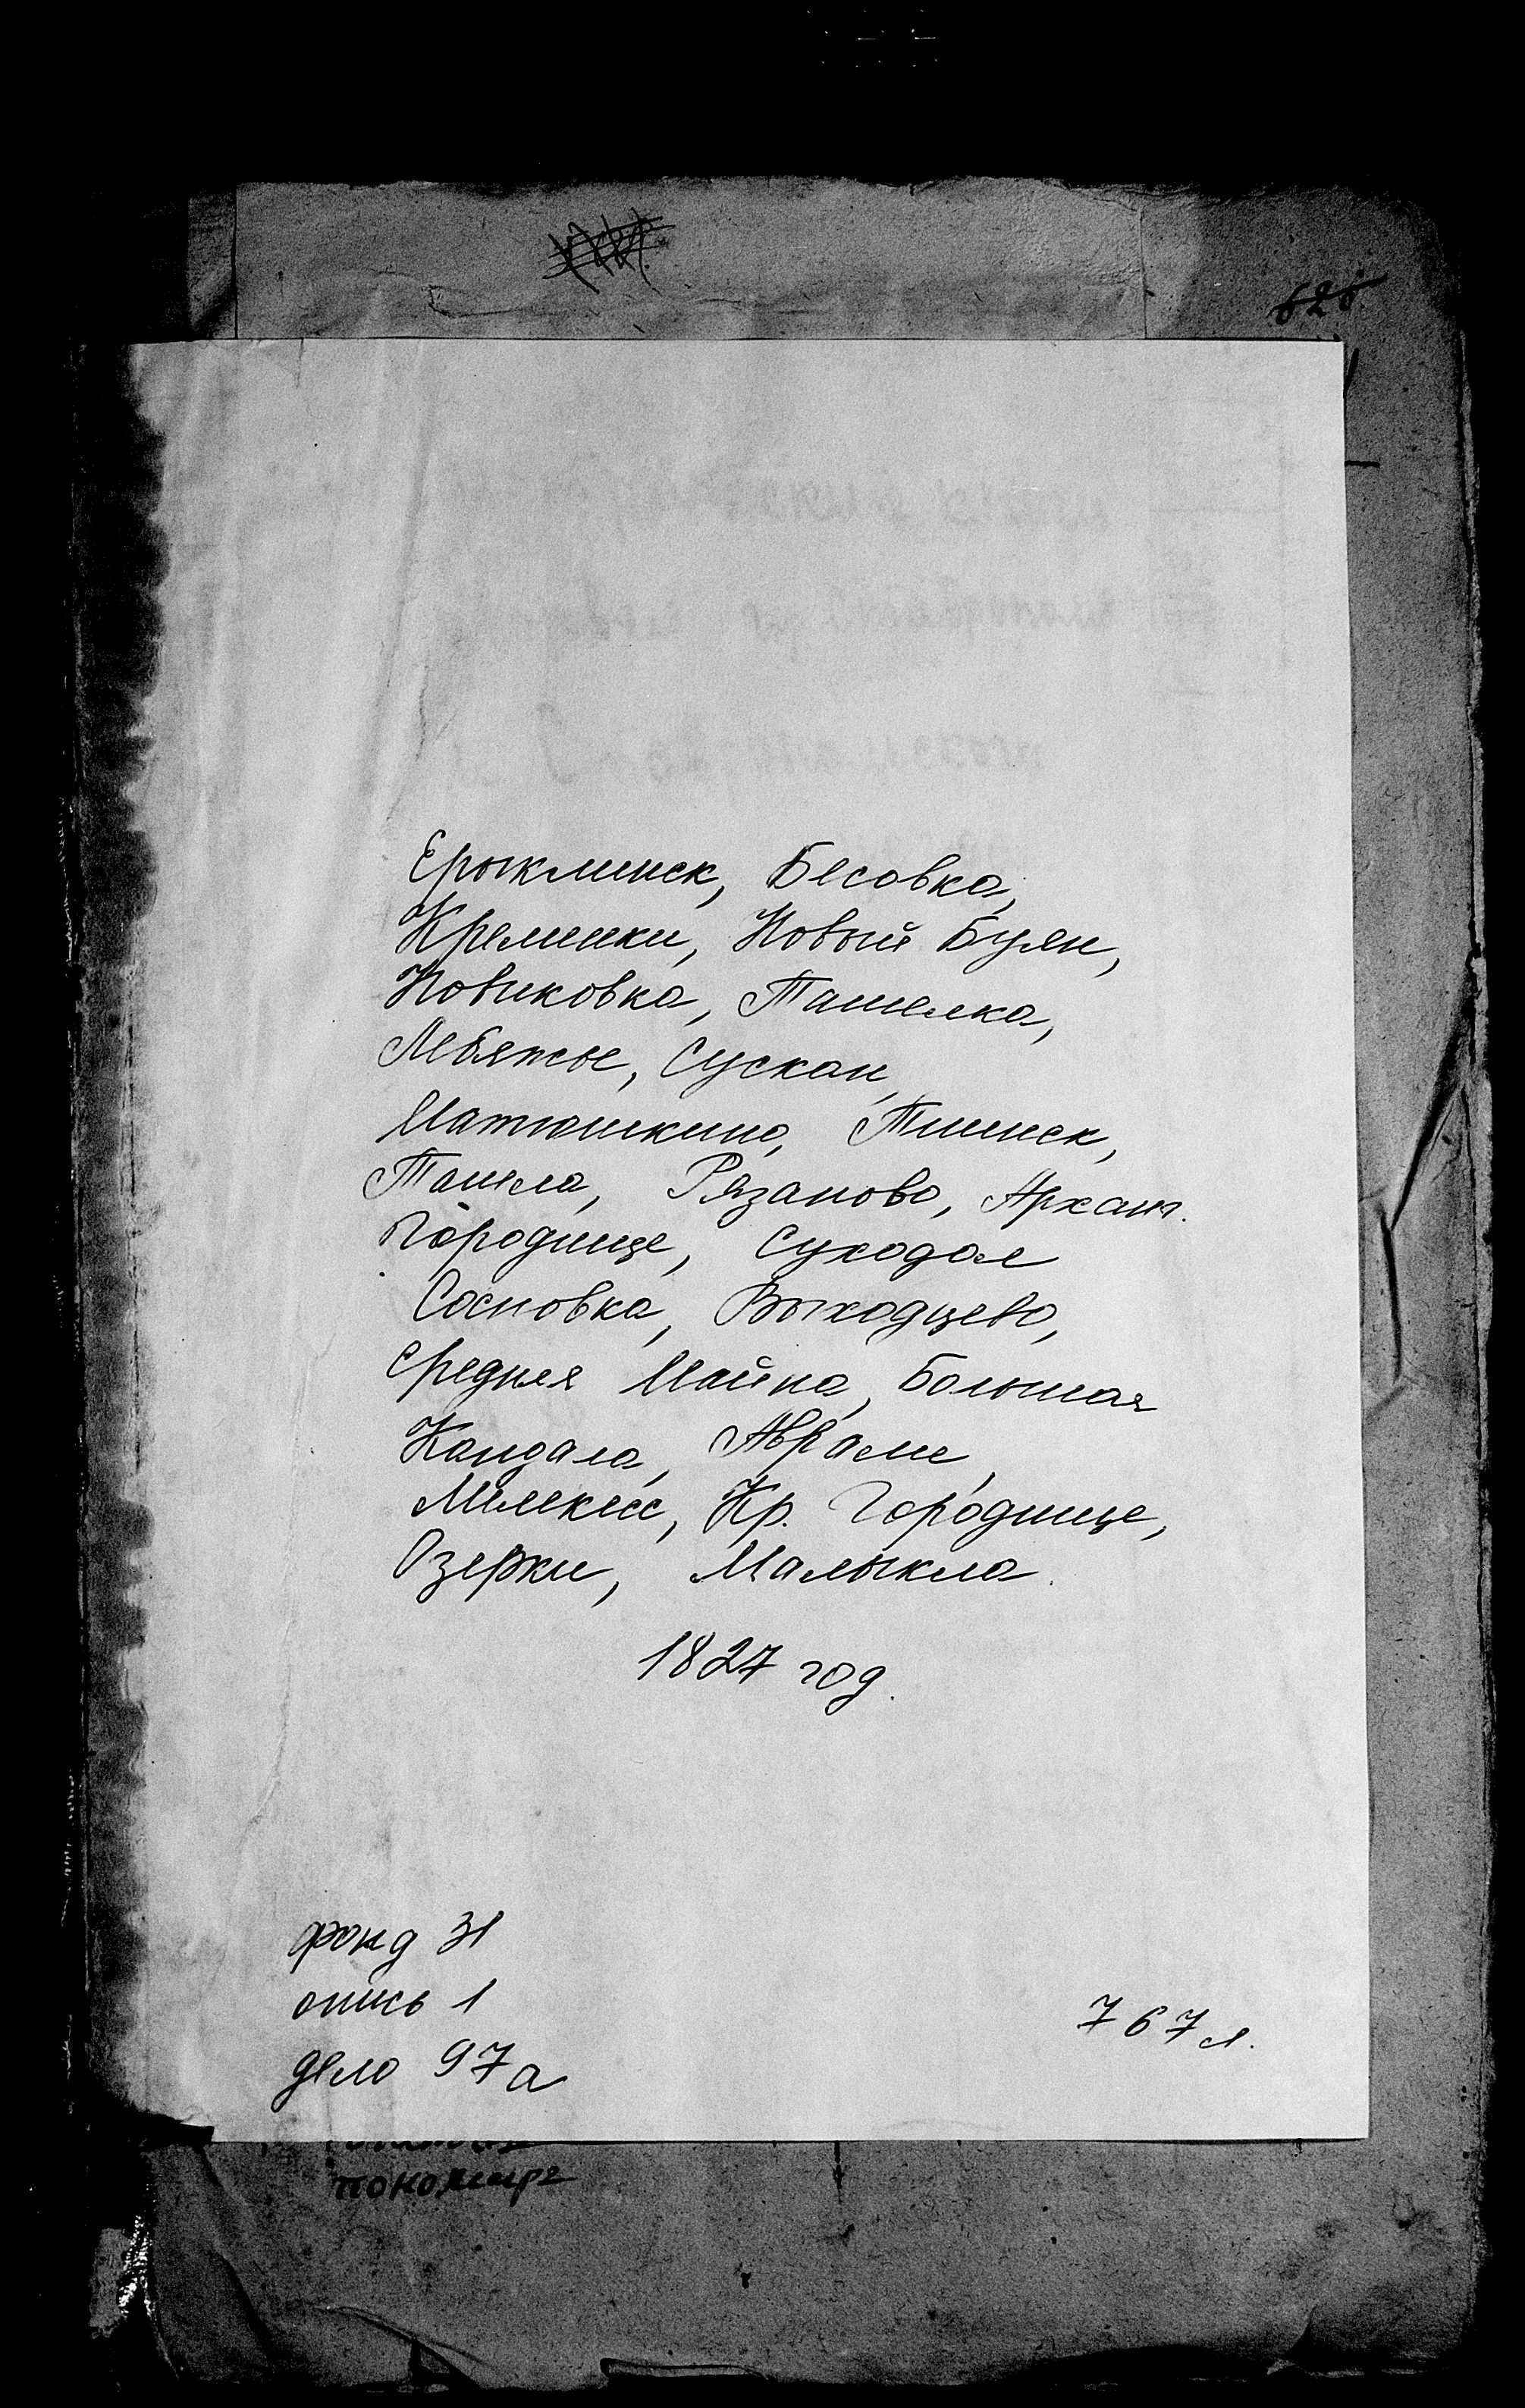 Ерыклинск, Бесовка,
Кременки, Новый Буян,
Новиковка, Ташелка,
Лебяжье, Сускан,
Матюшкино, Тиинск,
Ташла, Рязаново, Архан.
Городище, Суходол
Сосновка, Выходцево,
Средняя Майна, Большая
Кандала, Аврали,
Мелекесс, Кр. Городище,
Озерки, Малыкла.
1827 год.
фонд 31
опись 1
дело 97а
767 л.